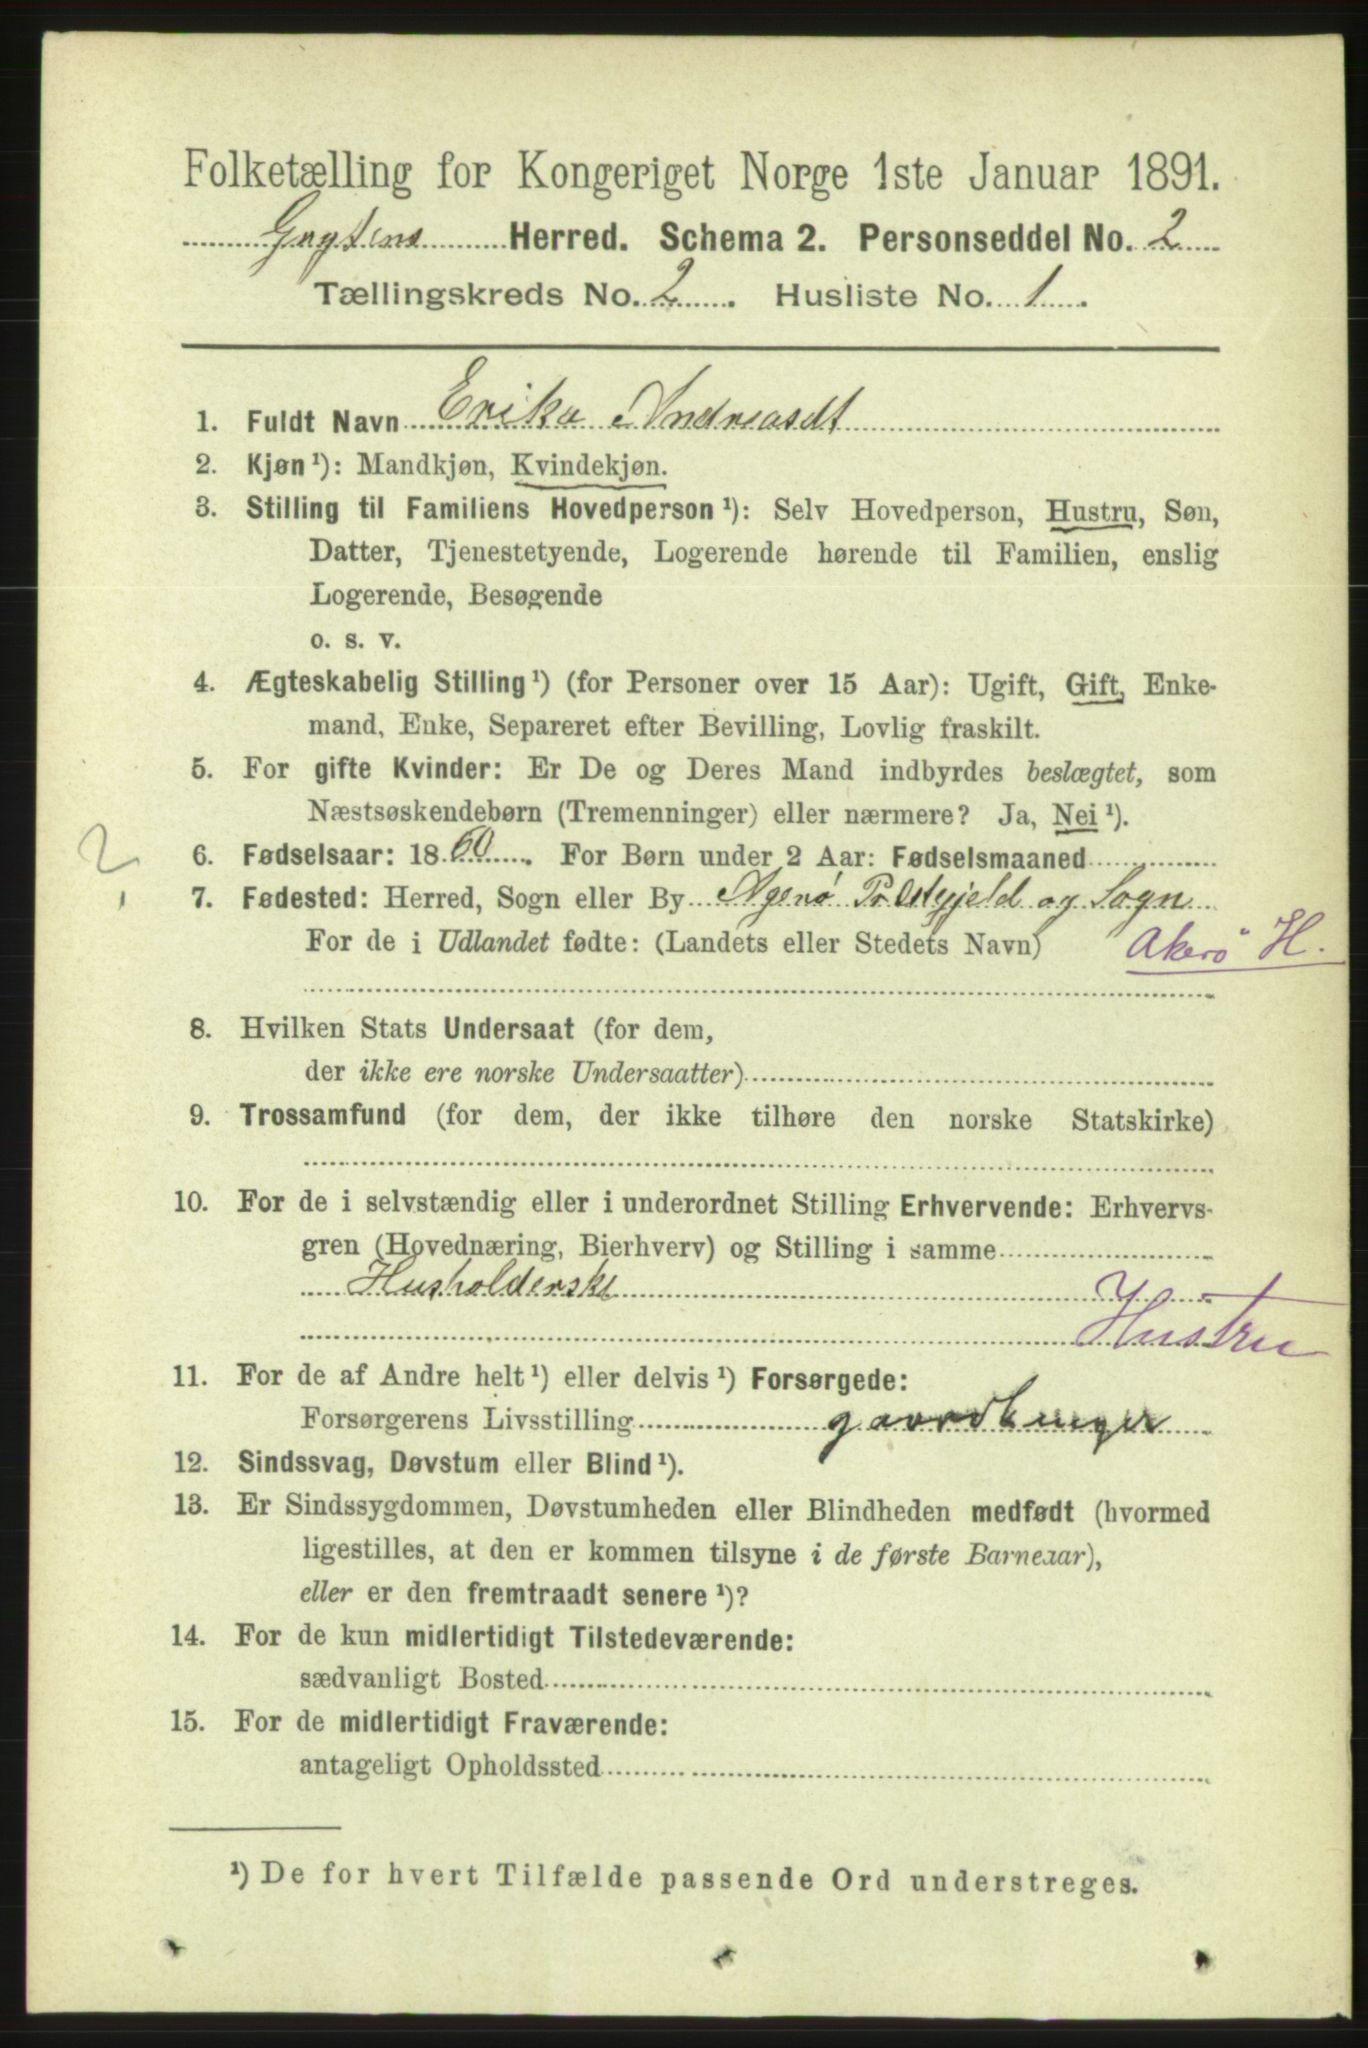 Folketælling for Kongeriget Norge 1ste Januar 1891.
Grytens Herred. Schema 2. Personseddel No. 2
Tællingskreds No. 2. Husliste No. 1.
1. Fuldt Navn Erika Andreasdt
2. Kjøn¹): Mandkjøn, Kvindekjøn.
3. Stilling til Familiens Hovedperson¹): Selv Hovedperson, Hustru, Søn,
Datter, Tjenestetyende, Logerende hørende til Familien, enslig
Logerende, Besøgende
o. s. v.
4. Ægteskabelig Stilling¹) (for Personer over 15 Aar): Ugift, Gift, Enke-
mand, Enke, Separeret efter Bevilling, Lovlig fraskilt.
5. For gifte Kvinder: Er De og Deres Mand indbyrdes beslægtet, som
Næstsøskendebørn (Tremenninger) eller nærmere? Ja, Nei¹).
?
6. Fødselsaar: 1860. For Børn under 2 Aar: Fødselsmaaned
7. Fødested: Herred, Sogn eller By Agerø Prestegjeld og Sogn
For de i Udlandet fødte: (Landets eller Stedets Navn) Akerø H.
8. Hvilken Stats Undersaat (for dem,
der ikke ere norske Undersaatter)
9. Trossamfund (for dem, der ikke tilhøre den norske Statskirke)
10. For de i selvstændig eller i underordnet Stilling Erhvervende: Erhvervs-
gren (Hovednæring, Bierhverv) og Stilling i samme
Husholderske
Hustru
11. For de af Andre helt¹) eller delvis¹) Forsørgede:
Forsørgerens Livsstilling gaardbruger
12. Sindssvag, Døvstum eller Blind¹).
13. Er Sindssygdommen, Døvstumheden eller Blindheden medfødt (hvormed
ligestilles, at den er kommen tilsyne i de første Barneaar),
eller er den fremtraadt senere¹)?
14. For de kun midlertidigt Tilstedeværende:
sædvanligt Bosted
15. For de midlertidigt Fraværende:
antageligt Opholdssted
¹) De for hvert Tilfælde passende Ord understreges.